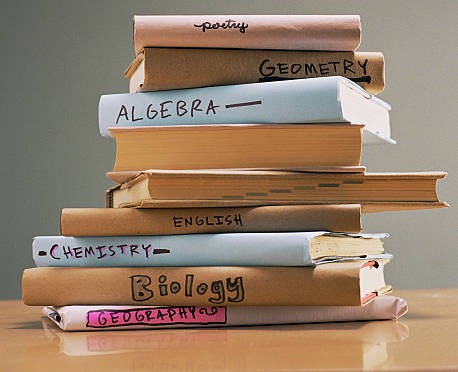 poetry
GEOMETRY
ALGEBRA
ENGLISH
CHEMISTRY
Biology
GEOGRAPHY